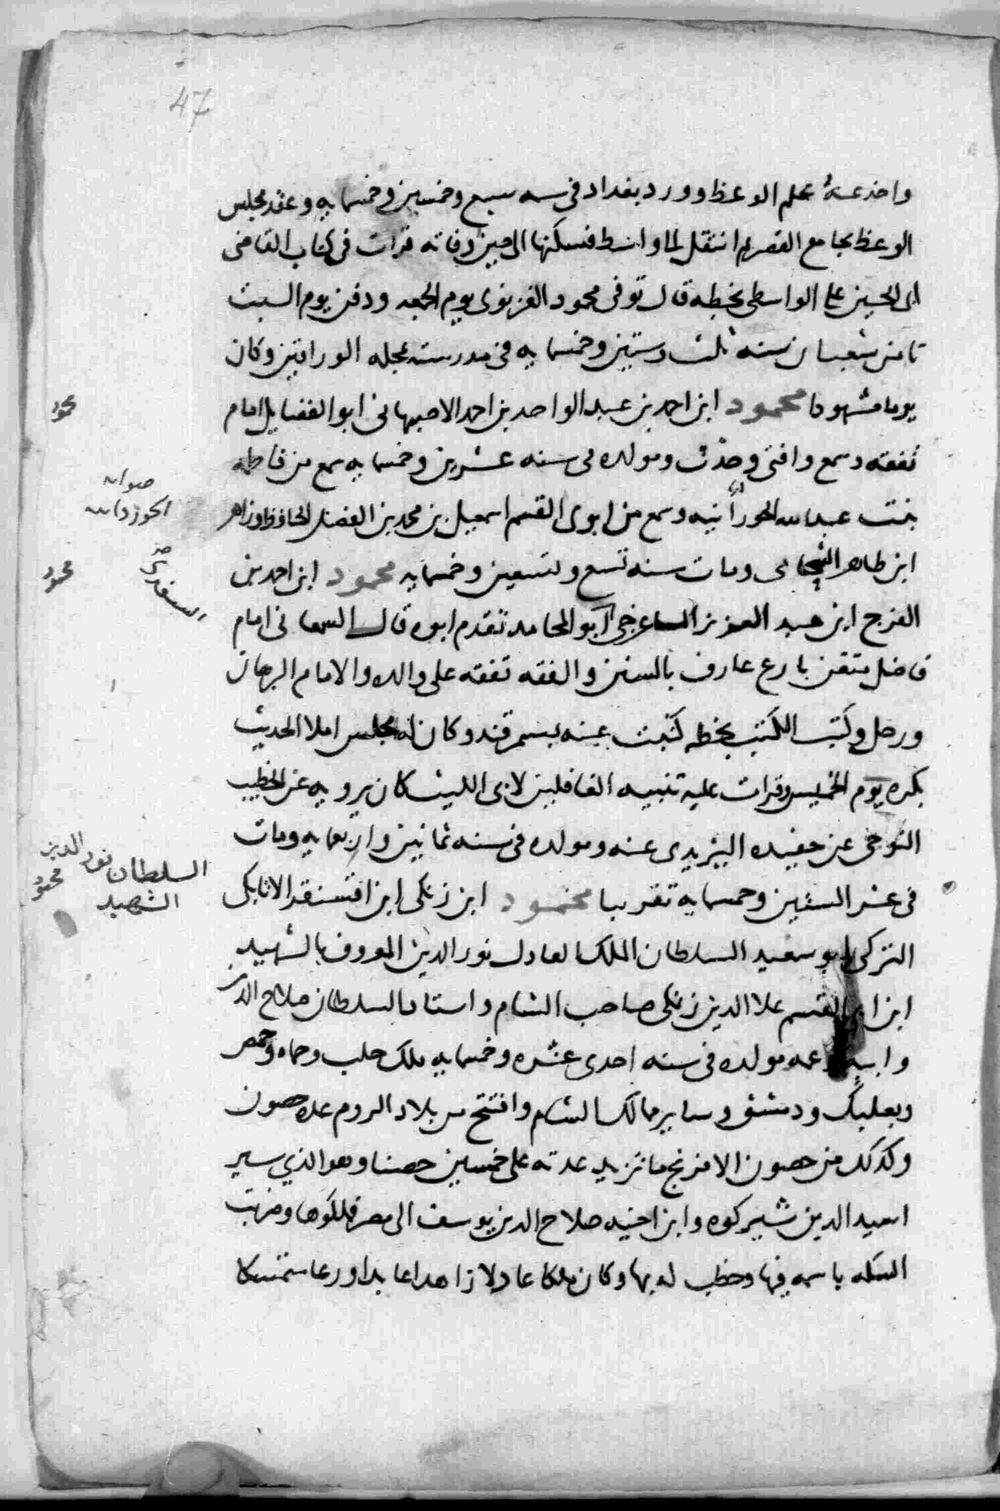 47
واخذ عنه علم الوعظ وورد بغداد فى سنه سبع وخمسين وخمسمايه وعقد مجلس
الوعظ بجامع القصر ثم انتقل الى واسط فسكنها الى حين وفاته قرات فى كتاب القاضى
ابى الحسين على الواسطى بخطه قال توفى محمود الغزنوى يوم الجمعه ودفن يوم السبت
ثامن شعبان سنه ثلث وستين وخمسمايه فى مدرسته بمحله الوراقين وكان
يوما مشهودا محمود ابن احمد بن عبد الواحد بن احمد الاصبهانى ابو الفضايل امام
تفقه وسمع وافتى وحدث ومولده فى سنه عشرين وخمسمايه سمع من فاطمه
بنت عبد الله الجوزدانيه وسمع من ابوى القسم اسمعيل بن محمد بن الفضل الحافظ وزاهر
ابن طاهر الشحامى ومات سنه تسع وتسعين وخمسمايه محمود ابن احمد بن
الفرج ابن عبد العزيز الساغرجى ابو المحامد تقدم ابوه قال السمعانى امام
فاضل متقن بارع عارف بالسنن والفقه تفقه على والده والامام البرهان
ورحل وكتب الكتب بخطه كتبت عنه بسمرقند وكان له مجلس املا الحديث
بكره يوم الخميس وقرات عليه تنبيه الغافلين لابى الليث كان يرويه عن الخطيب
النوحى عن حفيده التريدى عنه ومولده فى سنه ثمانين واربعمايه ومات
فى عشر الستين وخمسمايه تقريبا محمود ابن زنكى ابن اقسنقر الاتابكى
التركى ابو سعيد السلطان الملك العادل نور الدين المعروف بالشهيد
ابن ابى القسم علا الدين زنكى صاحب الشام واستاد السلطان صلاح الدين
وابيه وعمه مولده فى سنه احدى عشره وخمسمايه ملك حلب وحماه وحمص
وبعلبك ودمشق وساير ممالك الشام وافتتح من بلاد الروم عده حصون
وكذلك من حصون الافرنج ما تزيد عدته على خمسين حصنا وهو الذي سير
اسد الدين شيركوه وابن اخيه صلاح الدين يوسف الى مصر فملكوها وضربت
السكه باسمه فيها وخطب له بها وكان ملكا عادلا زاهدا عابدا ورعا متمسكا
محمود
صوابه
الجوزدانيه
محمود
السلطان نور الدين
محمود
الشهيد